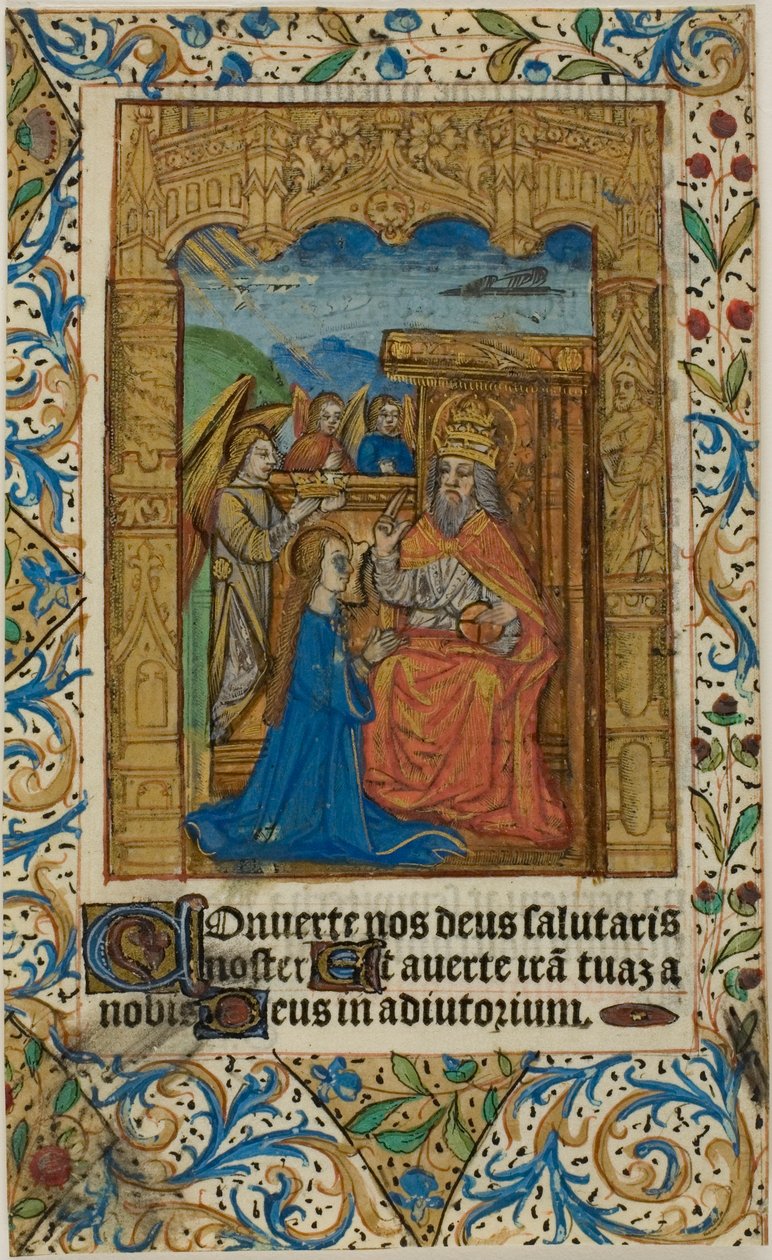 Conuerte nos deus salutaris
noster Et auerte irā tuaꝫ a
nobis Deus in adiutorium.